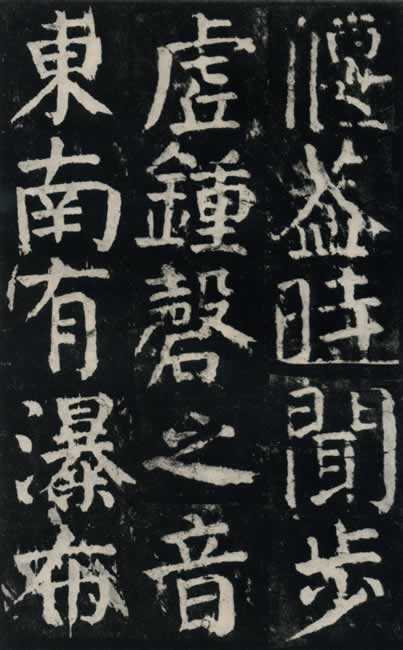 偃蓋時聞步
虛鍾磬之音
東南有瀑布